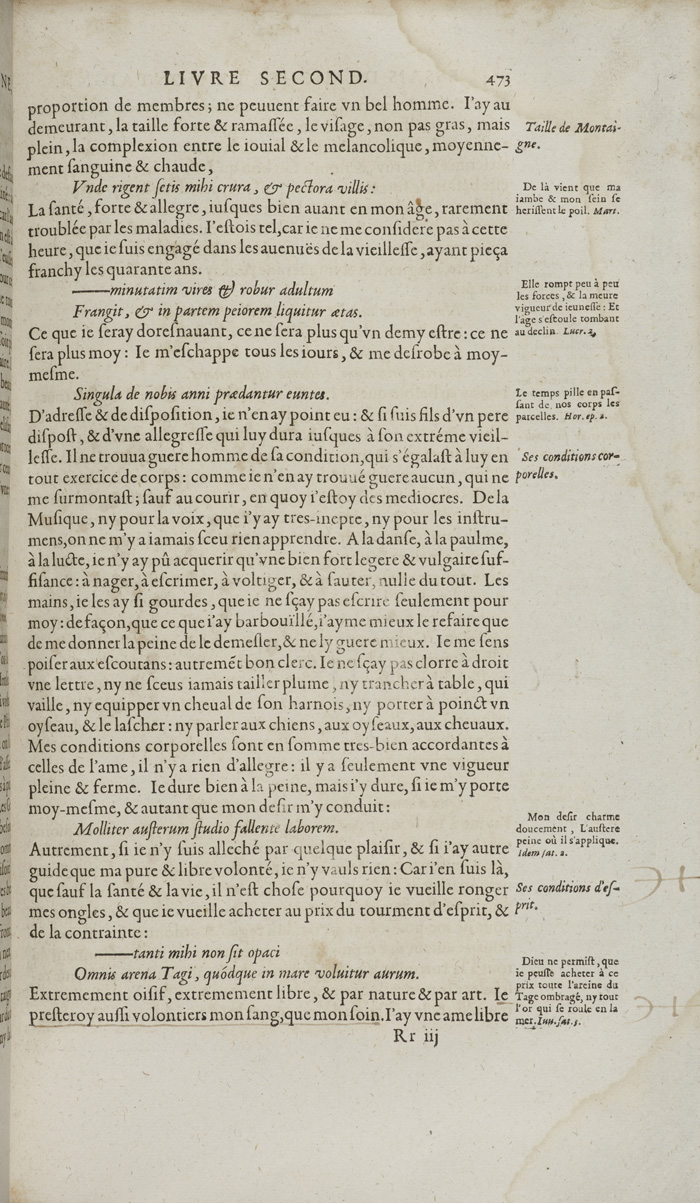 LIVRE SECOND. 473
proportion de membres; ne peuuent faire vn bel homme. I'ay au
demeurant, la taille forte & ramaſſée, le viſage, non pas gras, mais
plein, la complexion entre le iouial & le melancolique, moyenne-
ment ſanguine & chaude,
Taille de Montai-
gne.
Vnde rigent ſetis mihi crura, & pectora villis:
De là vient que ma
iambe & mon ſein ſe
heriſſent le poil. Mart.
La ſanté, forte & allegre, iuſques bien auant en mon âge, rarement
troublée par les maladies. I'eſtois tel, car ie ne me conſidere pas à cette
heure, que ie ſuis engagé dans les auenuës de la vieilleſſe, ayant pieça
franchy les quarante ans.
——minutatim vires & robur adultum
Frangit, & in partem peiorem liquitur ætas.
Elle rompt peu à peu
les forces, & la meure
vigueur de ieuneſſe: Et
l'âge s'eſcoule tombant
au declin. Lucr. 2.
Ce que ie ſeray doreſnauant, ce ne ſera plus qu'vn demy eſtre: ce ne
ſera plus moy: Ie m'eſchappe tous les iours, & me deſrobe à moy-
meſme.
Singula de nobis anni prædantur euntes.
Le temps pille en paſ-
ſant de nos corps les
parcelles. Hor. ep. 2.
D'adreſſe & de diſpoſition, ie n'en ay point eu: & ſi ſuis fils d'vn pere
diſpoſt, & d'vne allegreſſe qui luy dura iuſques à ſon extréme vieil-
leſſe. Il ne trouua guere homme de ſa condition, qui s'égalaſt à luy en
tout exercice de corps: comme ie n'en ay trouué guere aucun, qui ne
me ſurmontaſt; ſauf au courir, en quoy i'eſtoy des mediocres. De la
Ses conditions cor-
porelles.
Muſique, ny pour la voix, que i'y ay tres-inepte, ny pour les inſtru-
mens, on ne m'y a iamais ſceu rien apprendre. A la danſe, à la paulme,
à la lucte, ie n'y ay pû acquerir qu'vne bien fort legere & vulgaire ſuf-
fiſance: à nager, à eſcrimer, à voltiger, & à ſauter, nulle du tout. Les
mains, ie les ay ſi gourdes, que ie ne ſçay pas eſcrire ſeulement pour
moy: de façon, que ce que i'ay barbouïllé, i'ayme mieux le refaire que
de me donner la peine de le demeſler, & ne ly guere mieux. Ie me ſens
poiſer aux eſcoutans: autremēt bon clerc. Ie ne ſçay pas clorre à droit
vne lettre, ny ne ſceus iamais tailler plume, ny trancher à table, qui
vaille, ny equipper vn cheual de ſon harnois, ny porter à poinct vn
oyſeau, & le laſcher: ny parler aux chiens, aux oyſeaux, aux cheuaux.
Mes conditions corporelles ſont en ſomme tres-bien accordantes à
celles de l'ame, il n'y a rien d'allegre: il y a ſeulement vne vigueur
pleine & ferme. Ie dure bien à la peine, mais i'y dure, ſi ie m'y porte
moy-meſme, & autant que mon deſir m'y conduit:
Molliter auſterum ſtudio fallente laborem.
Mon deſir charme
doucement, L'auſtere
peine où il s'applique.
Idem ſat. 2.
Autrement, ſi ie n'y ſuis alleché par quelque plaiſir, & ſi i'ay autre
guide que ma pure & libre volonté, ie n'y vauls rien: Car i'en ſuis là,
que ſauf la ſanté & la vie, il n'eſt choſe pourquoy ie vueille ronger
mes ongles, & que ie vueille acheter au prix du tourment d'eſprit, &
de la contrainte:
Ses conditions d'eſ-
prit.
——tanti mihi non ſit opaci
Omnis arena Tagi, quódque in mare voluitur aurum.
Dieu ne permiſt, que
ie peuſſe acheter à ce
prix toute l'areine du
Tage ombragé, ny tout
l'or qui ſe roule en la
mer. Iuu. ſat. 3.
Extremement oiſif, extremement libre, & par nature & par art. Ie
preſteroy auſſi volontiers mon ſang, que mon ſoin. I'ay vne ame libre
Rr iij